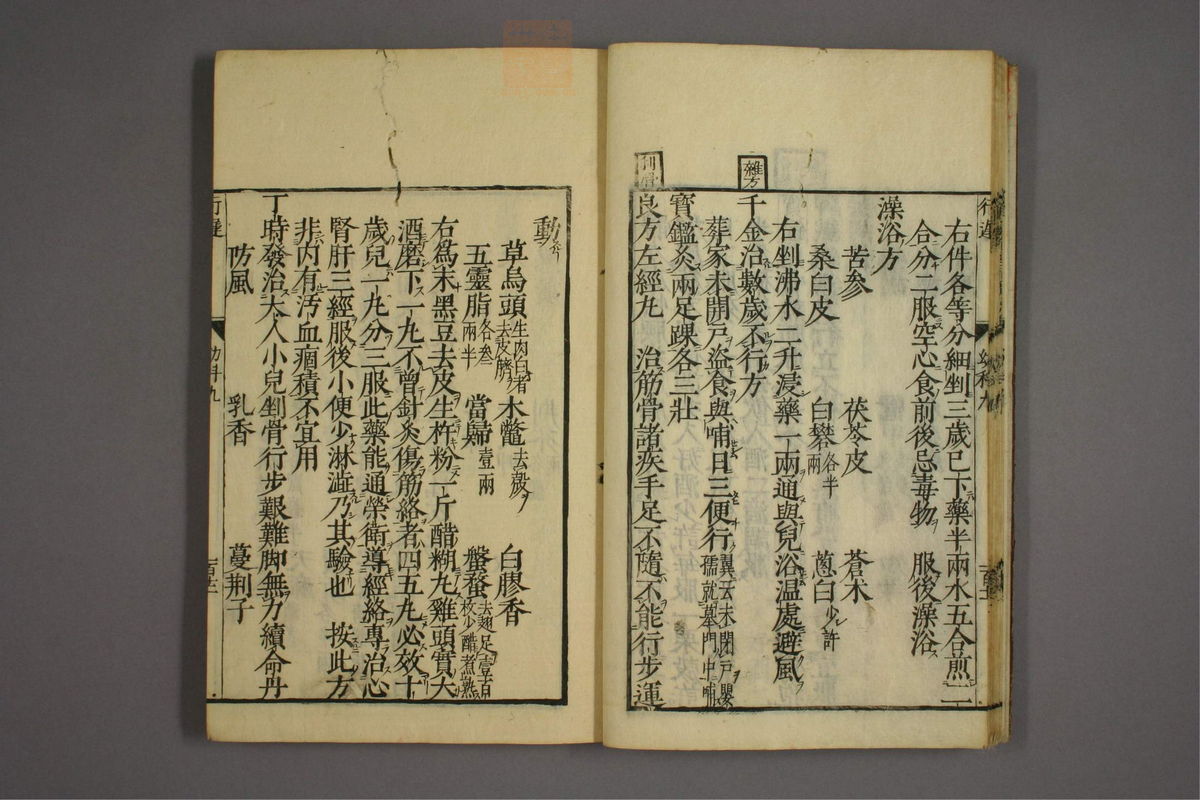 行遲
右件各等分細剉三歲已下藥半兩水五合煎二
合分二服空心食前後忌毒物　服後澡浴
澡浴方
苦參　茯苓皮　蒼朮
桑白皮　白礬各半兩　蔥白少許
右剉沸水二升浸藥一兩通與兒浴溫處避風
雜方
千金治數歲不行方
葬家未開戶盜食與哺日三便行
寶鑑灸兩足踝各三壯
良方左經丸　治筋骨諸疾手足不隨不能行步運
動
草烏頭生肉白者去皮臍　木鼈去殼　白膠香
五靈脂各參兩半　當歸壹兩　蟹蝥去翅足壹百枚少醋煮熟
右爲末黑豆去皮生杵粉一斤醋糊丸雞頭實大
酒磨下一丸不曾針灸傷筋絡者四五丸必效十
歲兒一丸分三服此藥能通榮衛導經絡專治心
腎肝三經服後小便少淋澁乃其驗也　按此方
非内有活血痼積不宜用
丁時發治大人小兒剉骨行步艱難脚無力續命丹
防風　乳香　蔓荆子
行遲
幼科九